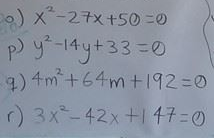 o) x²-27x+50=0
p) y²-14y+33=0
q) 4m²+64m+192=0
r) 3x²-42x+147=0